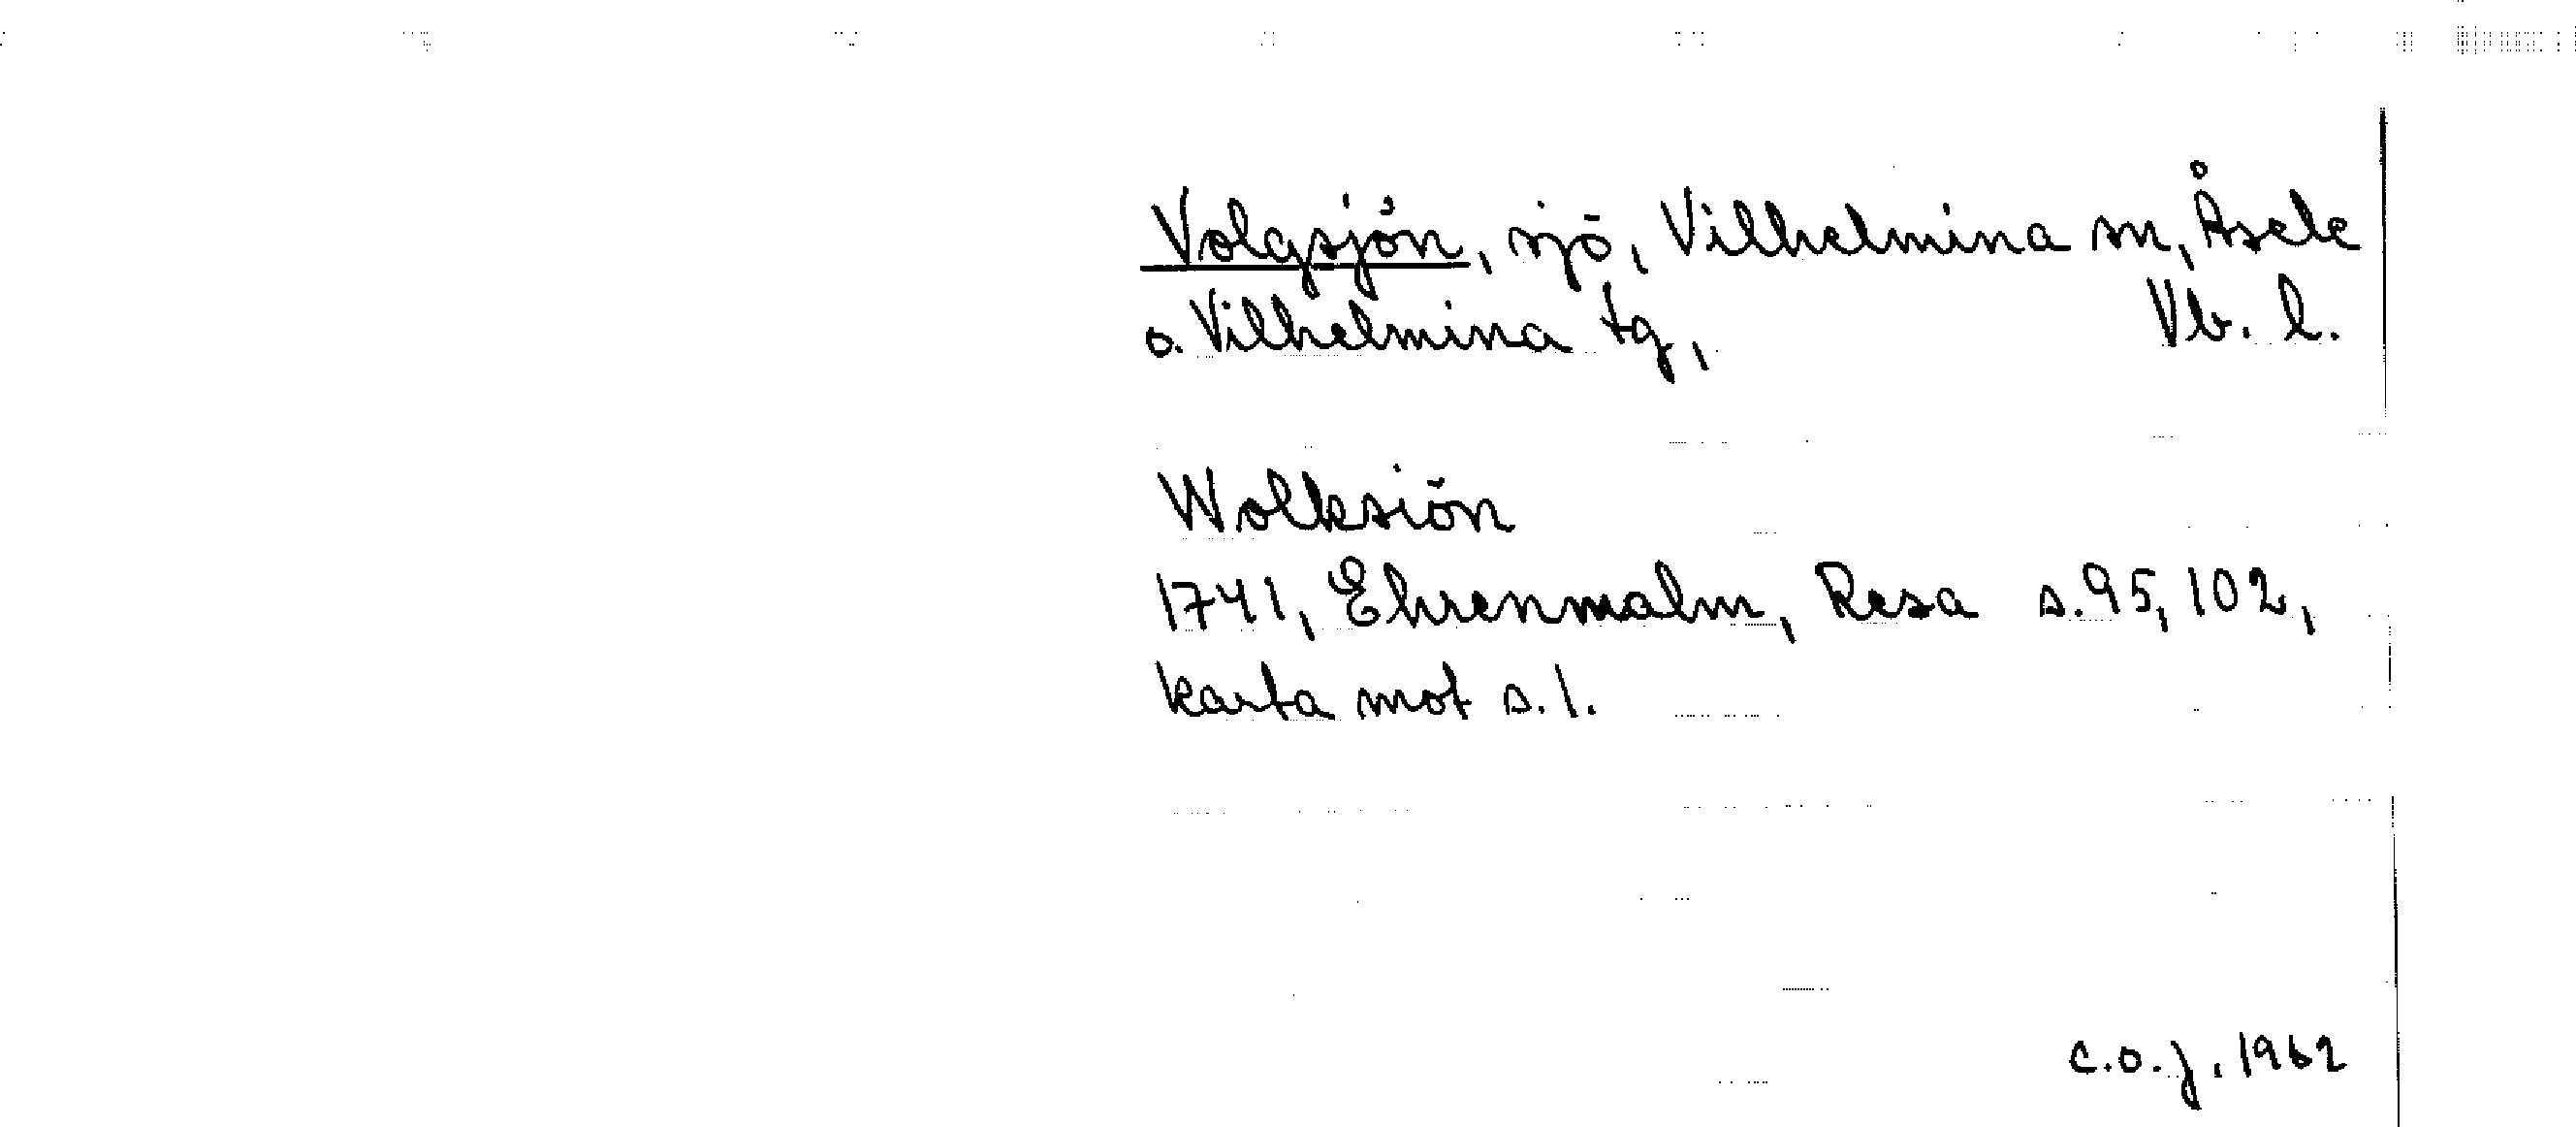 Volgsjön, sjö, Vilhelmina sn, Åsele
o. Vilhelmina tg, Vb. l.
Wolksiön
1741, Ehrenmalm, Resa s. 95, 102,
karta mot s. 1.
C.O.J. 1962